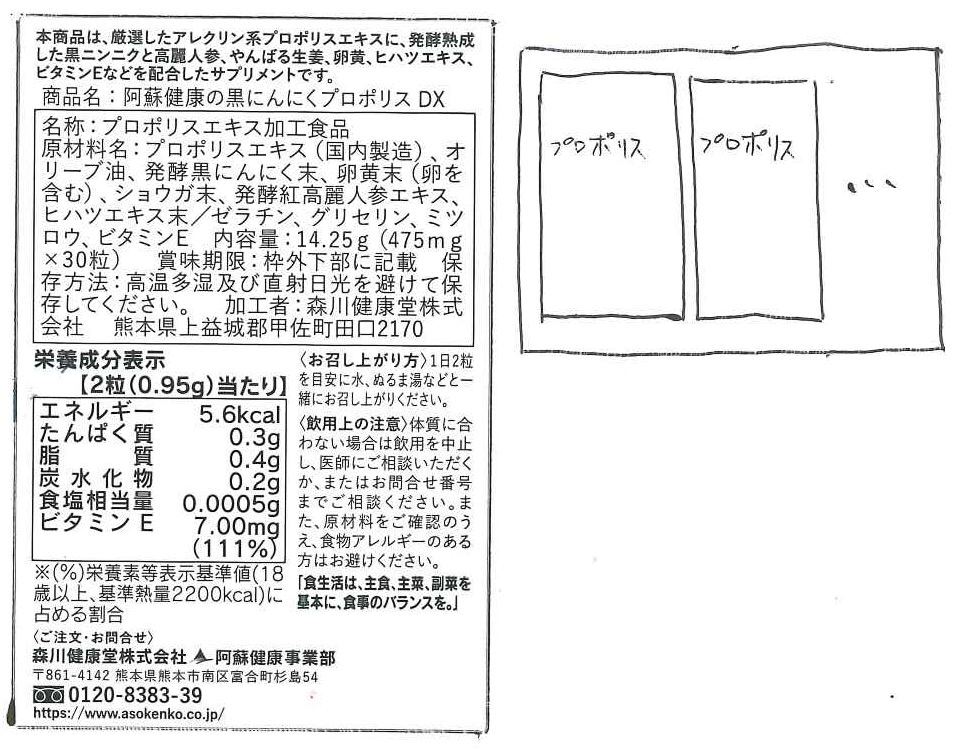 本商品は、厳選したアレクリン系プロポリスエキスに、発酵熟成
した黒ニンニクと高麗人参、やんばる生姜、卵黄、ヒハツエキス、
ビタミンEなどを配合したサプリメントです。
商品名：阿蘇健康の黒にんにくプロポリス DX
名称：プロポリスエキス加工食品
原材料名：プロポリスエキス（国内製造）、オ
リーブ油、発酵黒にんにく末、卵黄末（卵を
含む）、ショウガ末、発酵紅高麗人参エキス、
ヒハツエキス末／ゼラチン、グリセリン、ミツ
ロウ、ビタミンE　内容量：14.25g（475mg
×30粒）　賞味期限：枠外下部に記載　保
存方法：高温多湿及び直射日光を避けて保
存してください。　加工者：森川健康堂株式
会社　熊本県上益城郡甲佐町田口2170
栄養成分表示
【2粒（0.95g）当たり】
エネルギー 5.6kcal
たんぱく質 0.3g
脂質 0.4g
炭水化物 0.2g
食塩相当量 0.0005g
ビタミンE 7.00mg
（111%）
※(%)栄養素等表示基準値(18
歳以上、基準熱量2200kcal)に
占める割合
〈お召し上がり方〉1日2粒
を目安に水、ぬるま湯などと一
緒にお召し上がりください。
〈飲用上の注意〉体質に
合わない場合は飲用を中止
し、医師にご相談いただく
か、またはお問合せ番号
までご相談ください。ま
た、原材料をご確認のう
え、食物アレルギーのある
方はお避けください。
「食生活は、主食、主菜、副菜を
基本に、食事のバランスを。」
〈ご注文・お問合せ〉
森川健康堂株式会社 阿蘇健康事業部
〒861-4142 熊本県熊本市南区富合町杉島54
0120-8383-39
https://www.asokenko.co.jp/
プロポリス
プロポリス
・・・